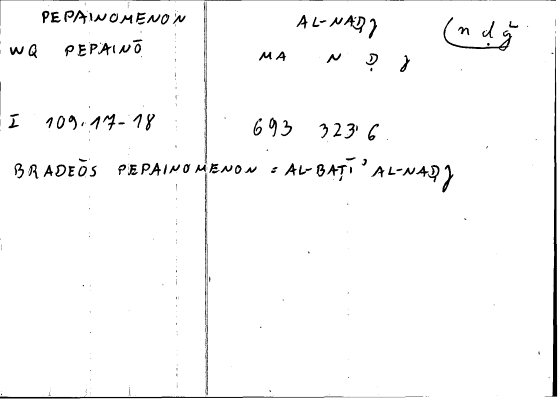 PEPAINOMENON AL-NAḌJ (n ḍ ǧ
WQ PEPAINŌ MA N Ḍ J
I 109.17-18 693 323.6
BRADEŌS PEPAINOMENON = AL-BAṬĪ' AL-NAḌJ